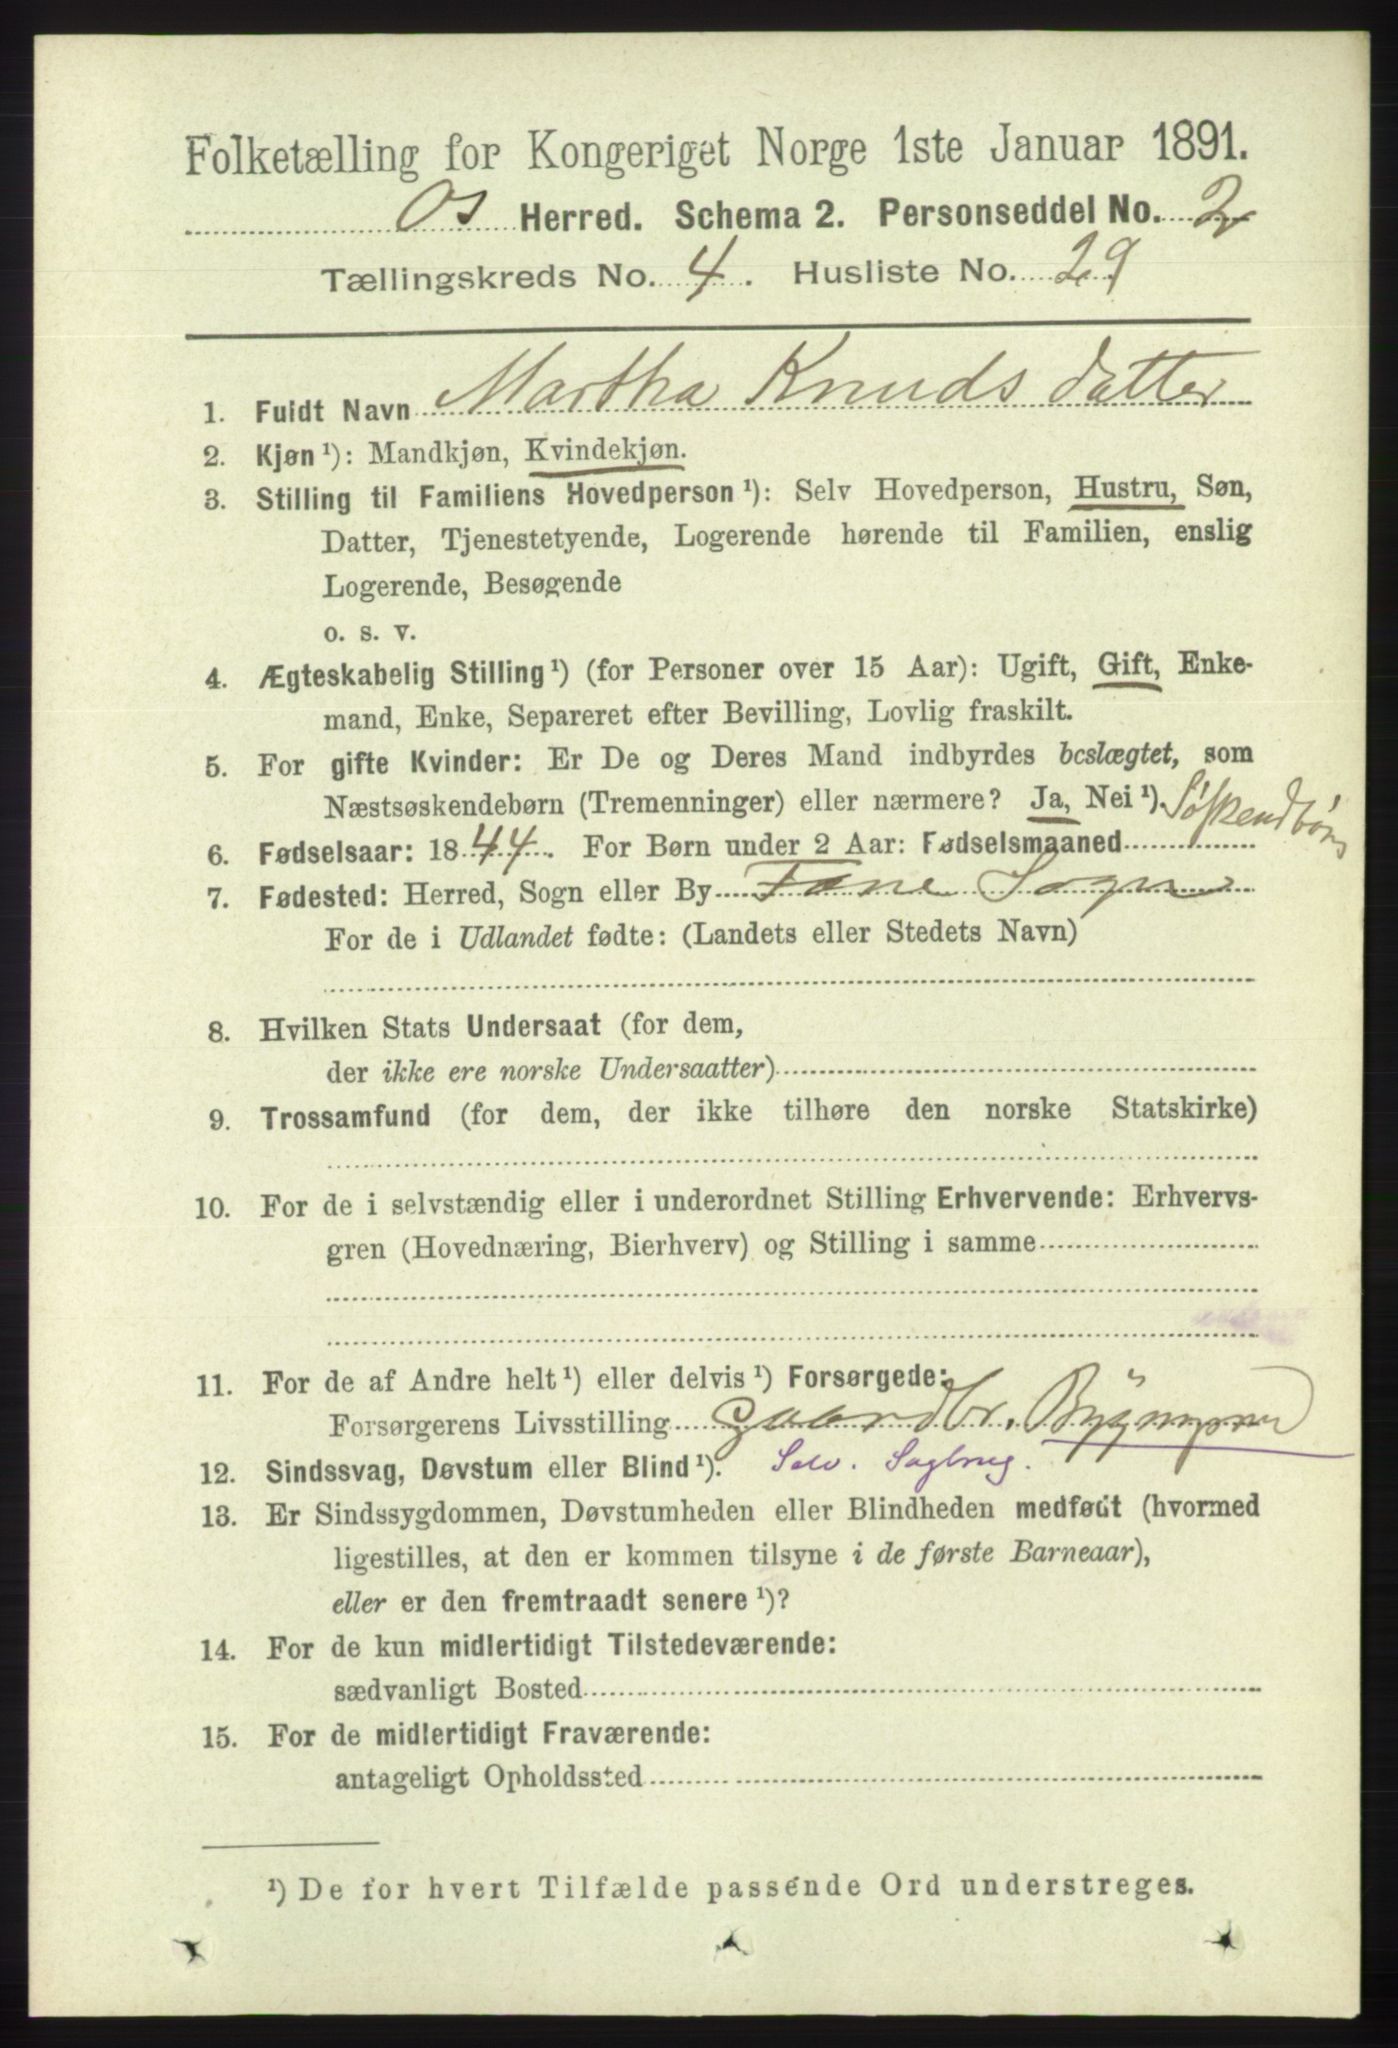 Folketælling for Kongeriget Norge 1ste Januar 1891.
Os Herred. Schema 2. Personseddel No. 2
Tællingskreds No. 4. Husliste No. 29
1. Fuldt Navn Martha Knudsdatter
2. Kjøn ¹): Mandkjøn, Kvindekjøn.
3. Stilling til Familiens Hovedperson ¹): Selv Hovedperson, Hustru, Søn,
Datter, Tjenestetyende, Logerende hørende til Familien, enslig
Logerende, Besøgende
o. s. v.
4. Ægteskabelig Stilling ¹) (for Personer over 15 Aar): Ugift, Gift, Enke-
mand, Enke, Separeret efter Bevilling, Lovlig fraskilt.
5. For gifte Kvinder: Er De og Deres Mand indbyrdes beslægtet, som
Næstsøskendebørn (Tremenninger) eller nærmere? Ja, Nei ¹). Søskendbørn
6. Fødselsaar: 1844. For Børn under 2 Aar: Fødselsmaaned
7. Fødested: Herred, Sogn eller By Fane Sogn
For de i Udlandet fødte: (Landets eller Stedets Navn)
8. Hvilken Stats Undersaat (for dem,
der ikke ere norske Undersaatter)
9. Trossamfund (for dem, der ikke tilhøre den norske Statskirke)
10. For de i selvstændig eller i underordnet Stilling Erhvervende: Erhvervs-
gren (Hovednæring, Bierhverv) og Stilling i samme
11. For de af Andre helt ¹) eller delvis ¹) Forsørgede:
Forsørgerens Livsstilling Gaardbr.
12. Sindssvag, Døvstum eller Blind ¹). Selv. Sagbrug.
13. Er Sindssygdommen, Døvstumheden eller Blindheden medfødt (hvormed
ligestilles, at den er kommen tilsyne i de første Barneaar),
eller er den fremtraadt senere ¹)?
14. For de kun midlertidigt Tilstedeværende:
sædvanligt Bosted
15. For de midlertidigt Fraværende:
antageligt Opholdssted
¹) De for hvert Tilfælde passende Ord understreges.